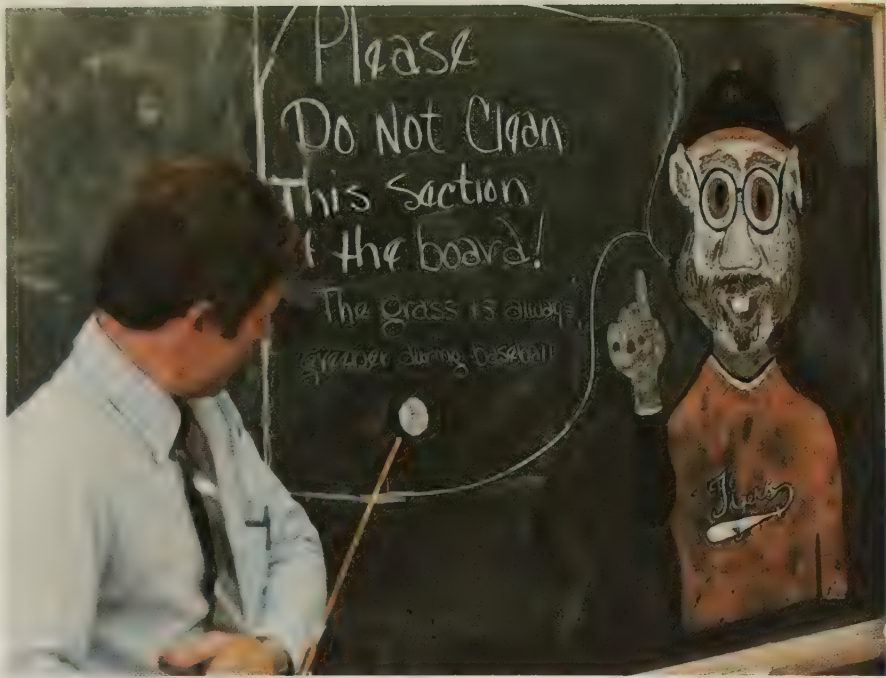 Please
Do Not Clean
This Section
the board!
The grass is always
greener during baseball
Tigers